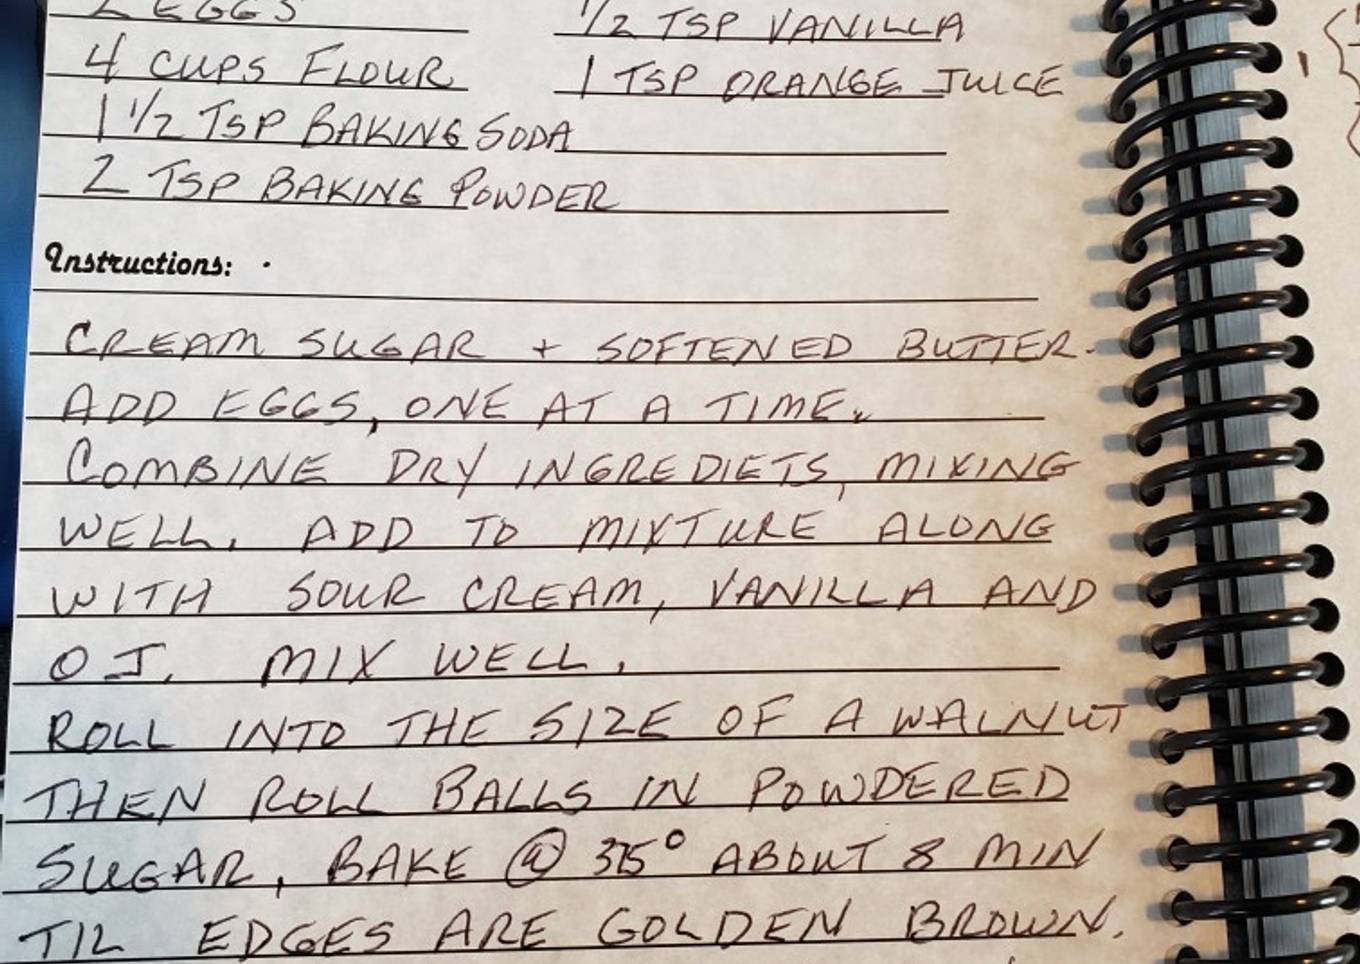 2 EGGS 1/2 TSP VANILLA
4 CUPS FLOUR 1 TSP ORANGE JUICE
1 1/2 TSP BAKING SODA
2 TSP BAKING POWDER
Instructions:
CREAM SUGAR + SOFTENED BUTTER.
ADD EGGS, ONE AT A TIME.
COMBINE DRY INGREDIETS, MIXING
WELL. ADD TO MIXTURE ALONG
WITH SOUR CREAM, VANILLA AND
OJ. MIX WELL.
ROLL INTO THE SIZE OF A WALNUT
THEN ROLL BALLS IN POWDERED
SUGAR, BAKE @ 375° ABOUT 8 MIN
TIL EDGES ARE GOLDEN BROWN.